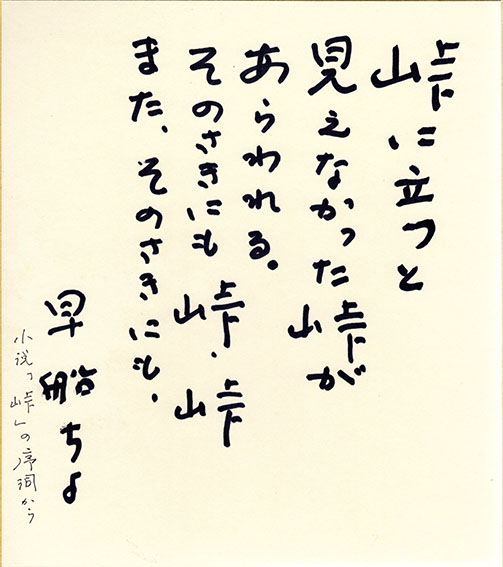 峠に立つと
見えなかった峠が
あらわれる。
そのさきにも 峠・峠
また、そのさきにも・
早船ちよ
小説「峠」の序詞から